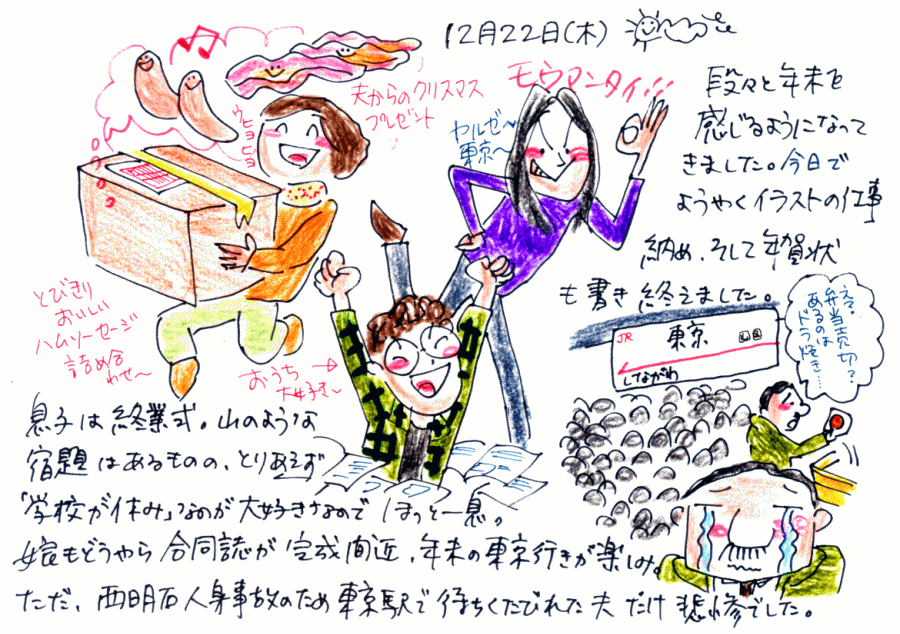 12月22日(木)
段々と年末を
感じるようになって
きました。今日で
ようやくイラストの仕事
納め、そして年賀状
も書き終えました。
夫からのクリスマス
プレゼント
ウヒョヒョ
モウマンタイ!!
ヤルゼ〜
東京〜
とびきり
おいしい
ハムソーセージ
詰め合
わせ〜
おうち
大好き〜
JR
東京
しながわ
ええ。
弁当売切?
あるのは
ドラ焼き…
息子は終業式。山のような
宿題はあるものの、とりあえず
「学校が休み」なのが大好きなので ほっと一息。
娘もどうやら合同誌が完成間近、年末の東京行きが楽しみ。
ただ、西明石人身事故のため東京駅で待ちくたびれた夫だけ悲惨でした。